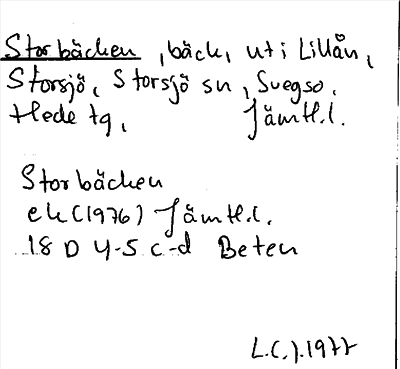 Storbäcken, bäck, ut i Lillån,
Storsjö, Storsjö sn, Svegs o.
Hede tg, Jämtl.l.
Storbäcken
ek (1976) Jämtl.l.
18 D 4-5 c-d Beten
L.C.J. 1977